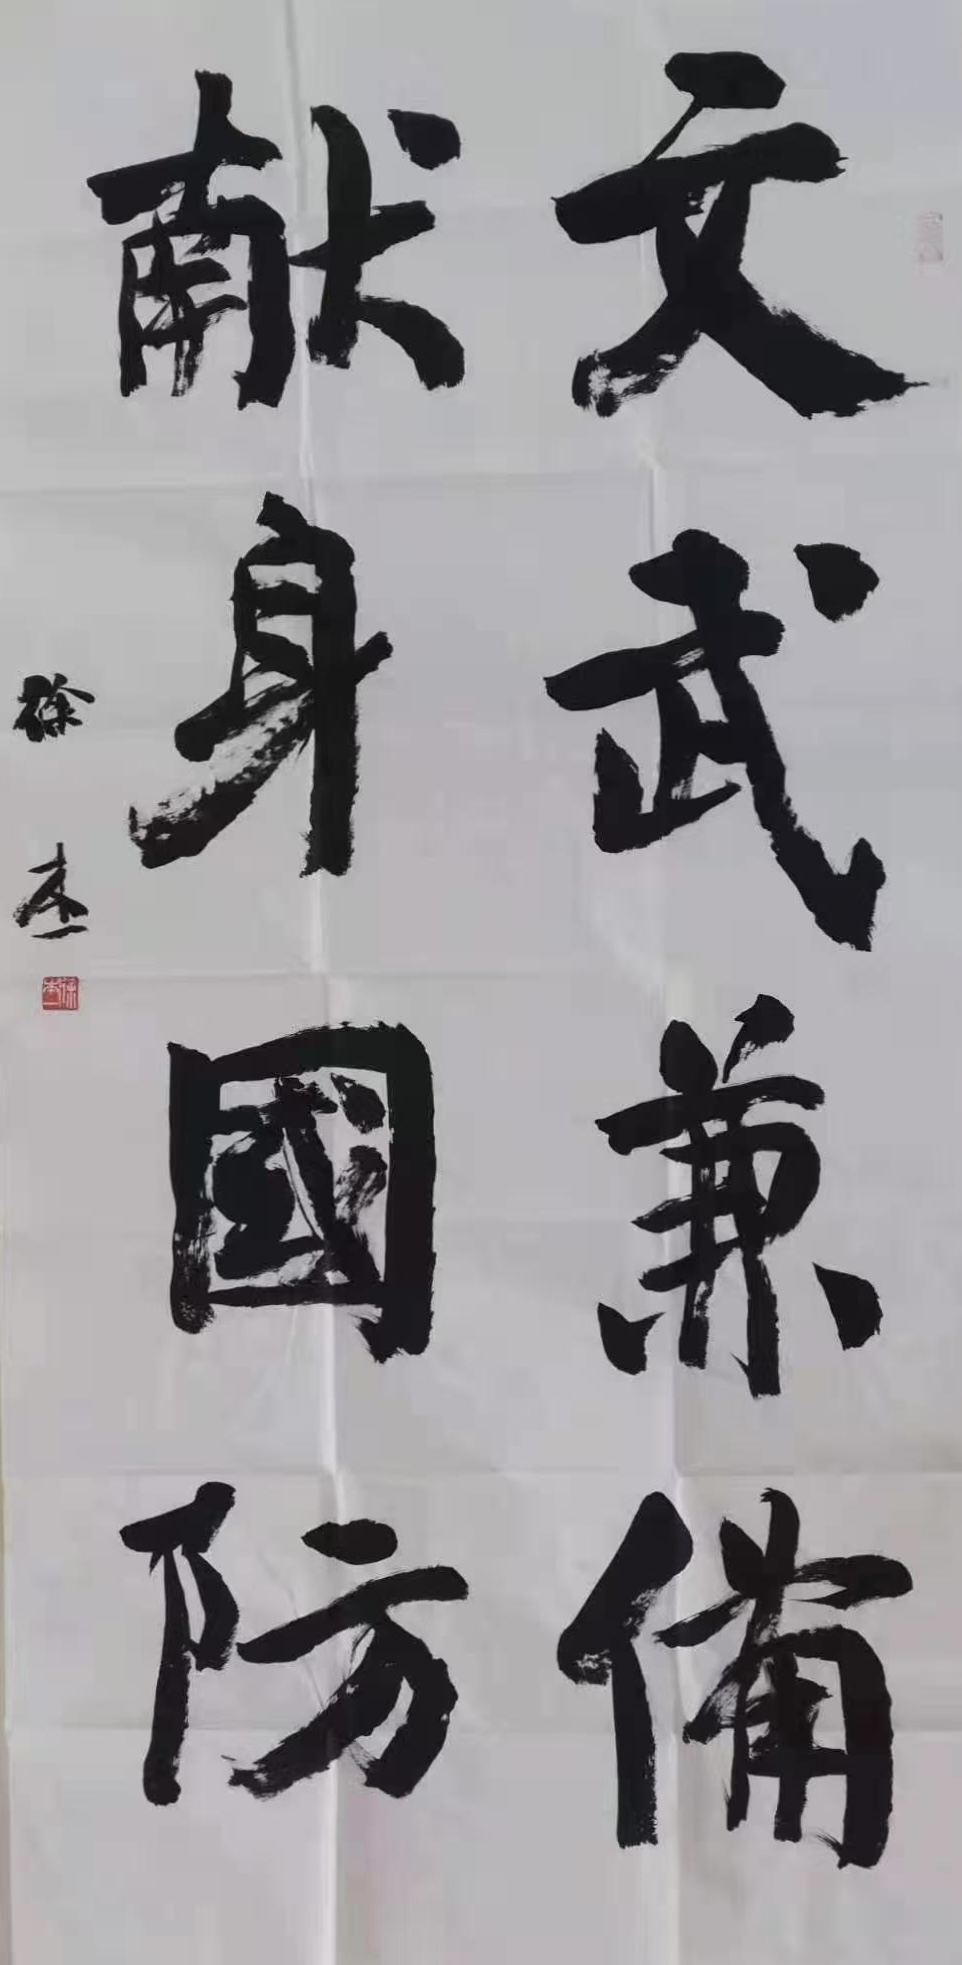 文武兼備
献身國防
徐杰